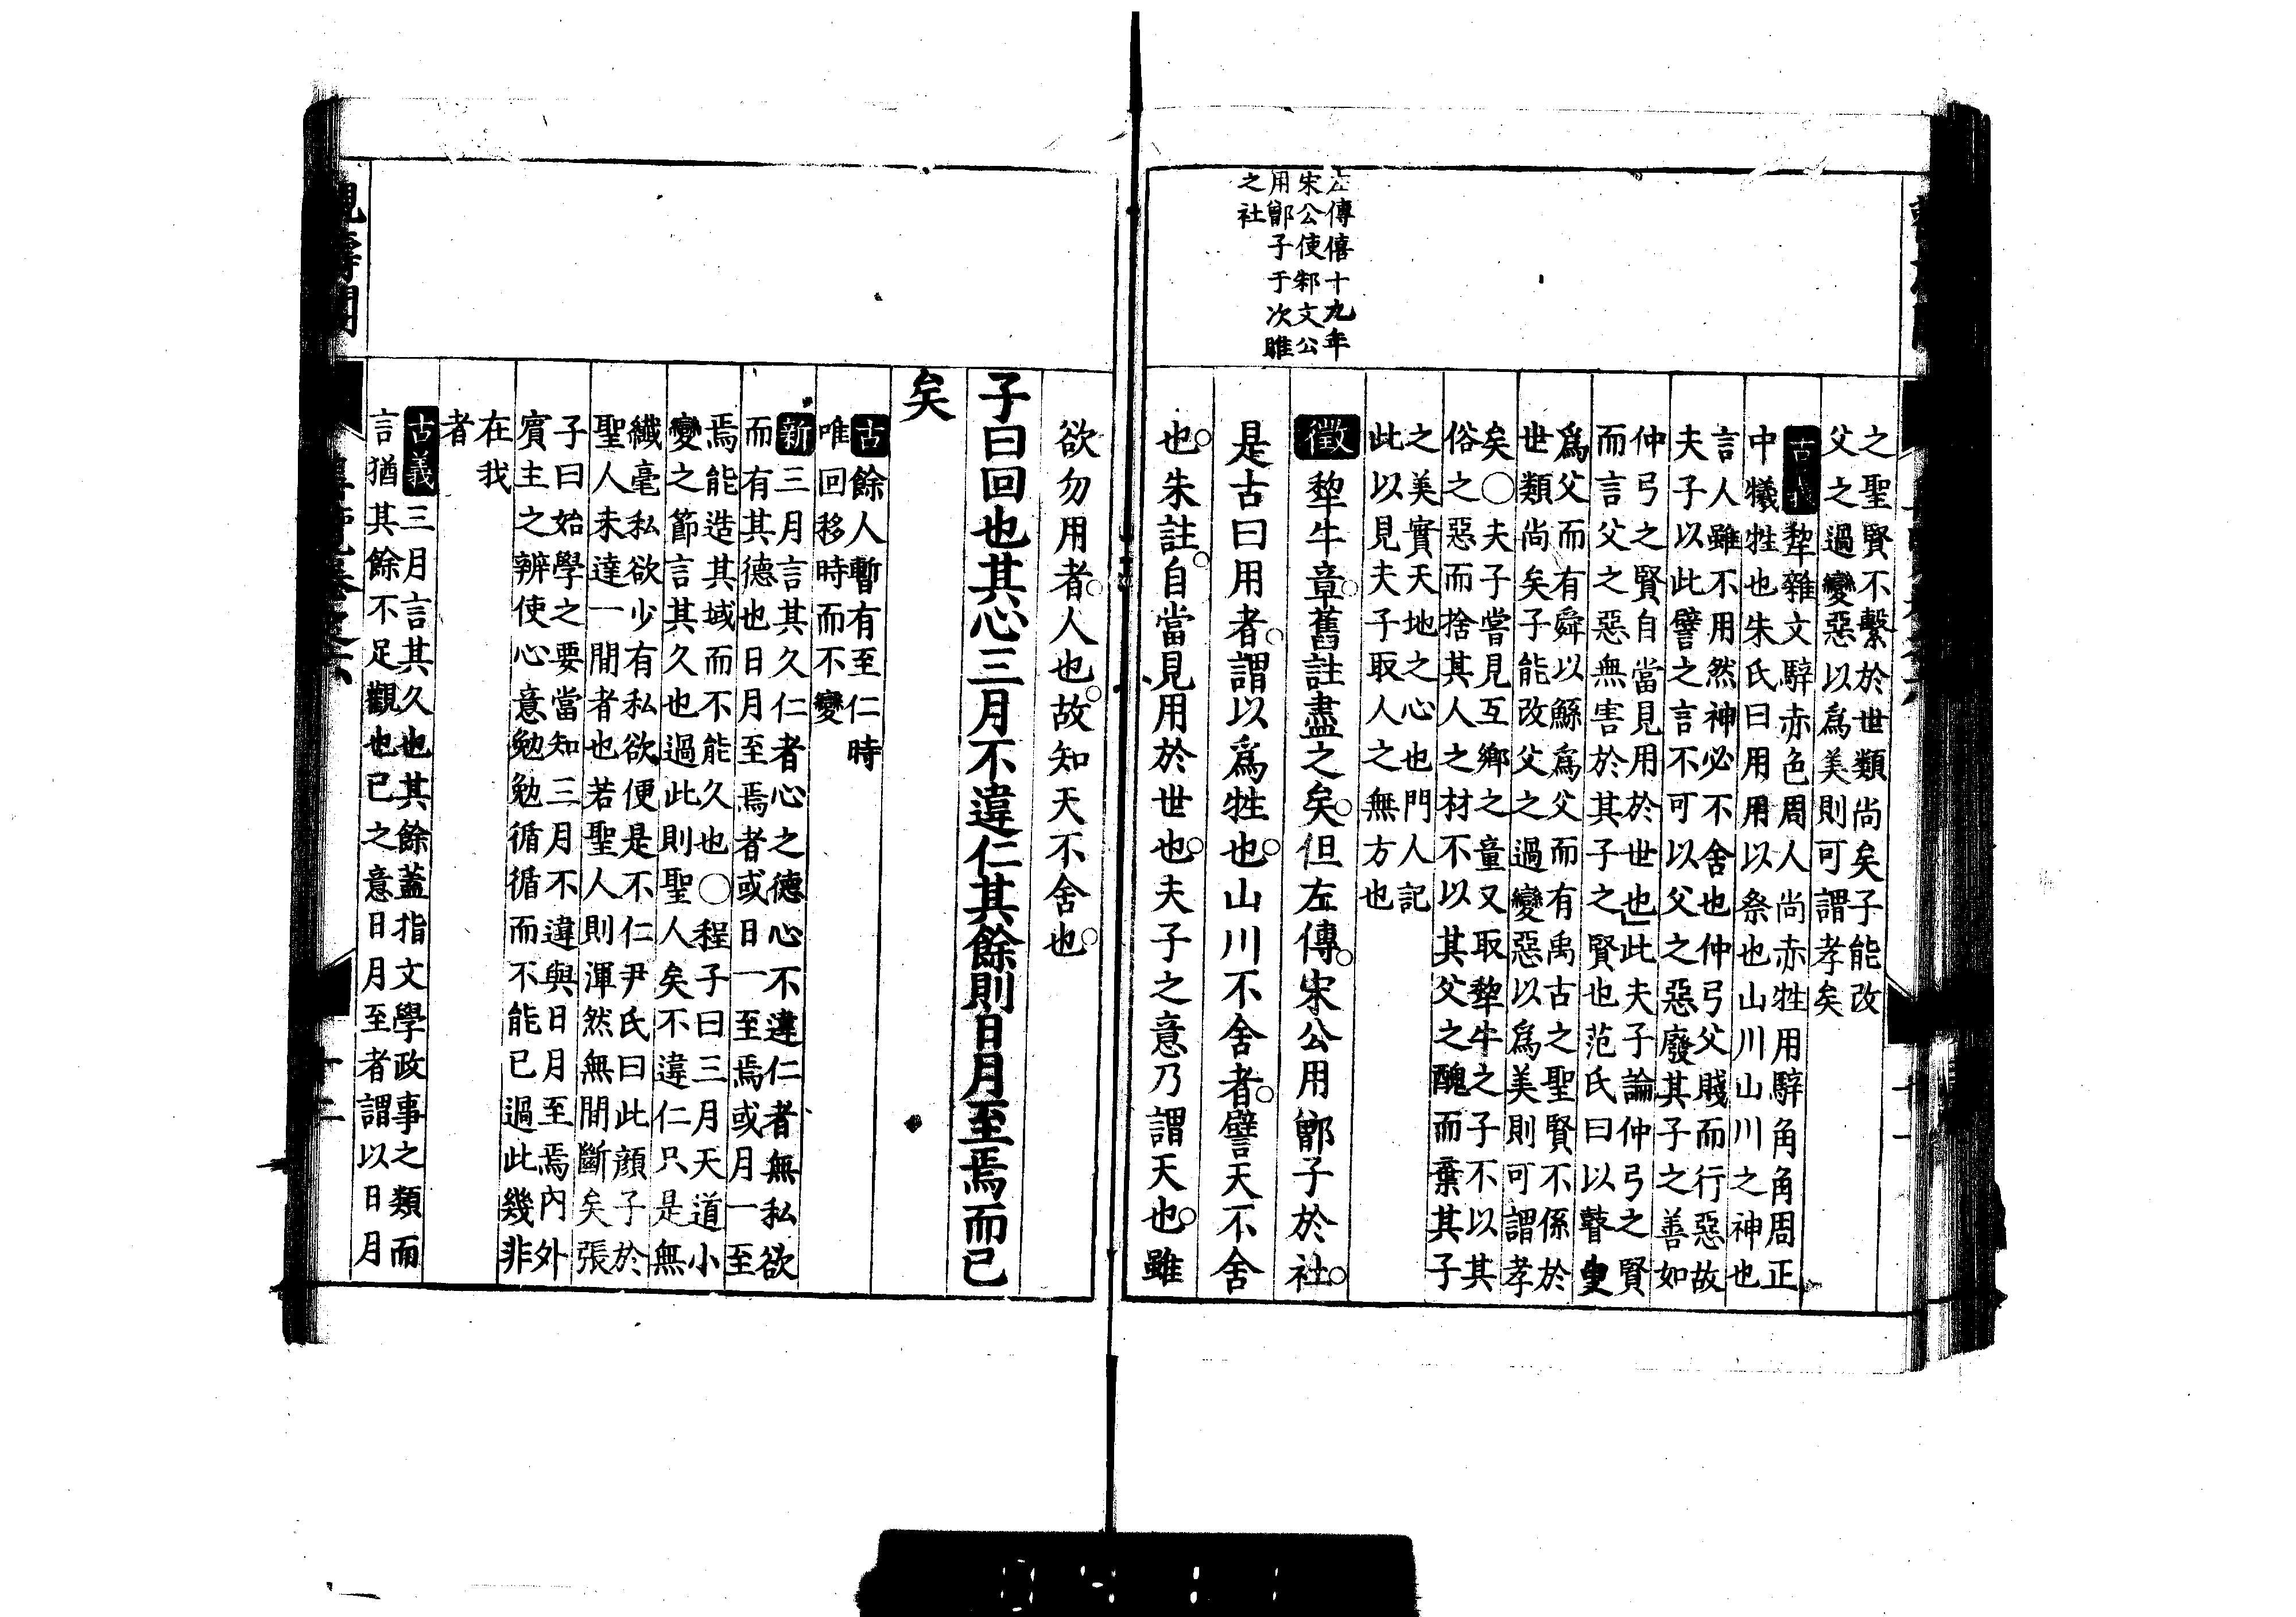 左傳僖十九年
宋公使邾文公
用鄫子于次睢
之社
之聖賢不繫於世類尚矣子能改
父之過變惡以爲美則可謂孝矣
古義犂雜文騂赤色周人尚赤牲用騂角角周正
中犧牲也朱氏曰用用以祭也山川山川之神也
言人雖不用然神必不舍也仲弓父賤而行惡故
夫子以此譬之言不可以父之惡廢其子之善如
仲弓之賢自當見用於世也此夫子論仲弓之賢
而言父之惡無害於其子之賢也范氏曰以瞽叟
爲父而有舜以鯀爲父而有禹古之聖賢不係於
世類尚矣子能改父之過變惡以爲美則可謂孝
矣○夫子嘗見互鄉之童又取犂牛之子不以其
俗之惡而捨其人之材不以其父之醜而棄其子
之美實天地之心也門人記
此以見夫子取人之無方也
徵犂牛章舊註盡之矣但左傳宋公用鄫子於社
是古曰用者謂以爲牲也山川不舍者譬天不舍
也朱註自當見用於世也夫子之意乃謂天也雖
欲勿用者人也故知天不舍也
子曰回也其心三月不違仁其餘則日月至焉而已
矣
古餘人暫有至仁時
唯回移時而不變
新三月言其久仁者心之德心不違仁者無私欲
而有其德也日月至焉者或日一至焉或月一至
焉能造其域而不能久也○程子曰三月天道小
變之節言其久也過此則聖人矣不違仁只是無
纖毫私欲少有私欲便是不仁尹氏曰此顔子於
聖人未達一間者也若聖人則渾然無間斷矣張
子曰始學之要當知三月不違與日月至焉內外
賓主之辨使心意勉勉循循而不能已過此幾非
在我
者
古義三月言其久也其餘蓋指文學政事之類而
言猶其餘不足觀也已之意日月至者謂以日月
十二